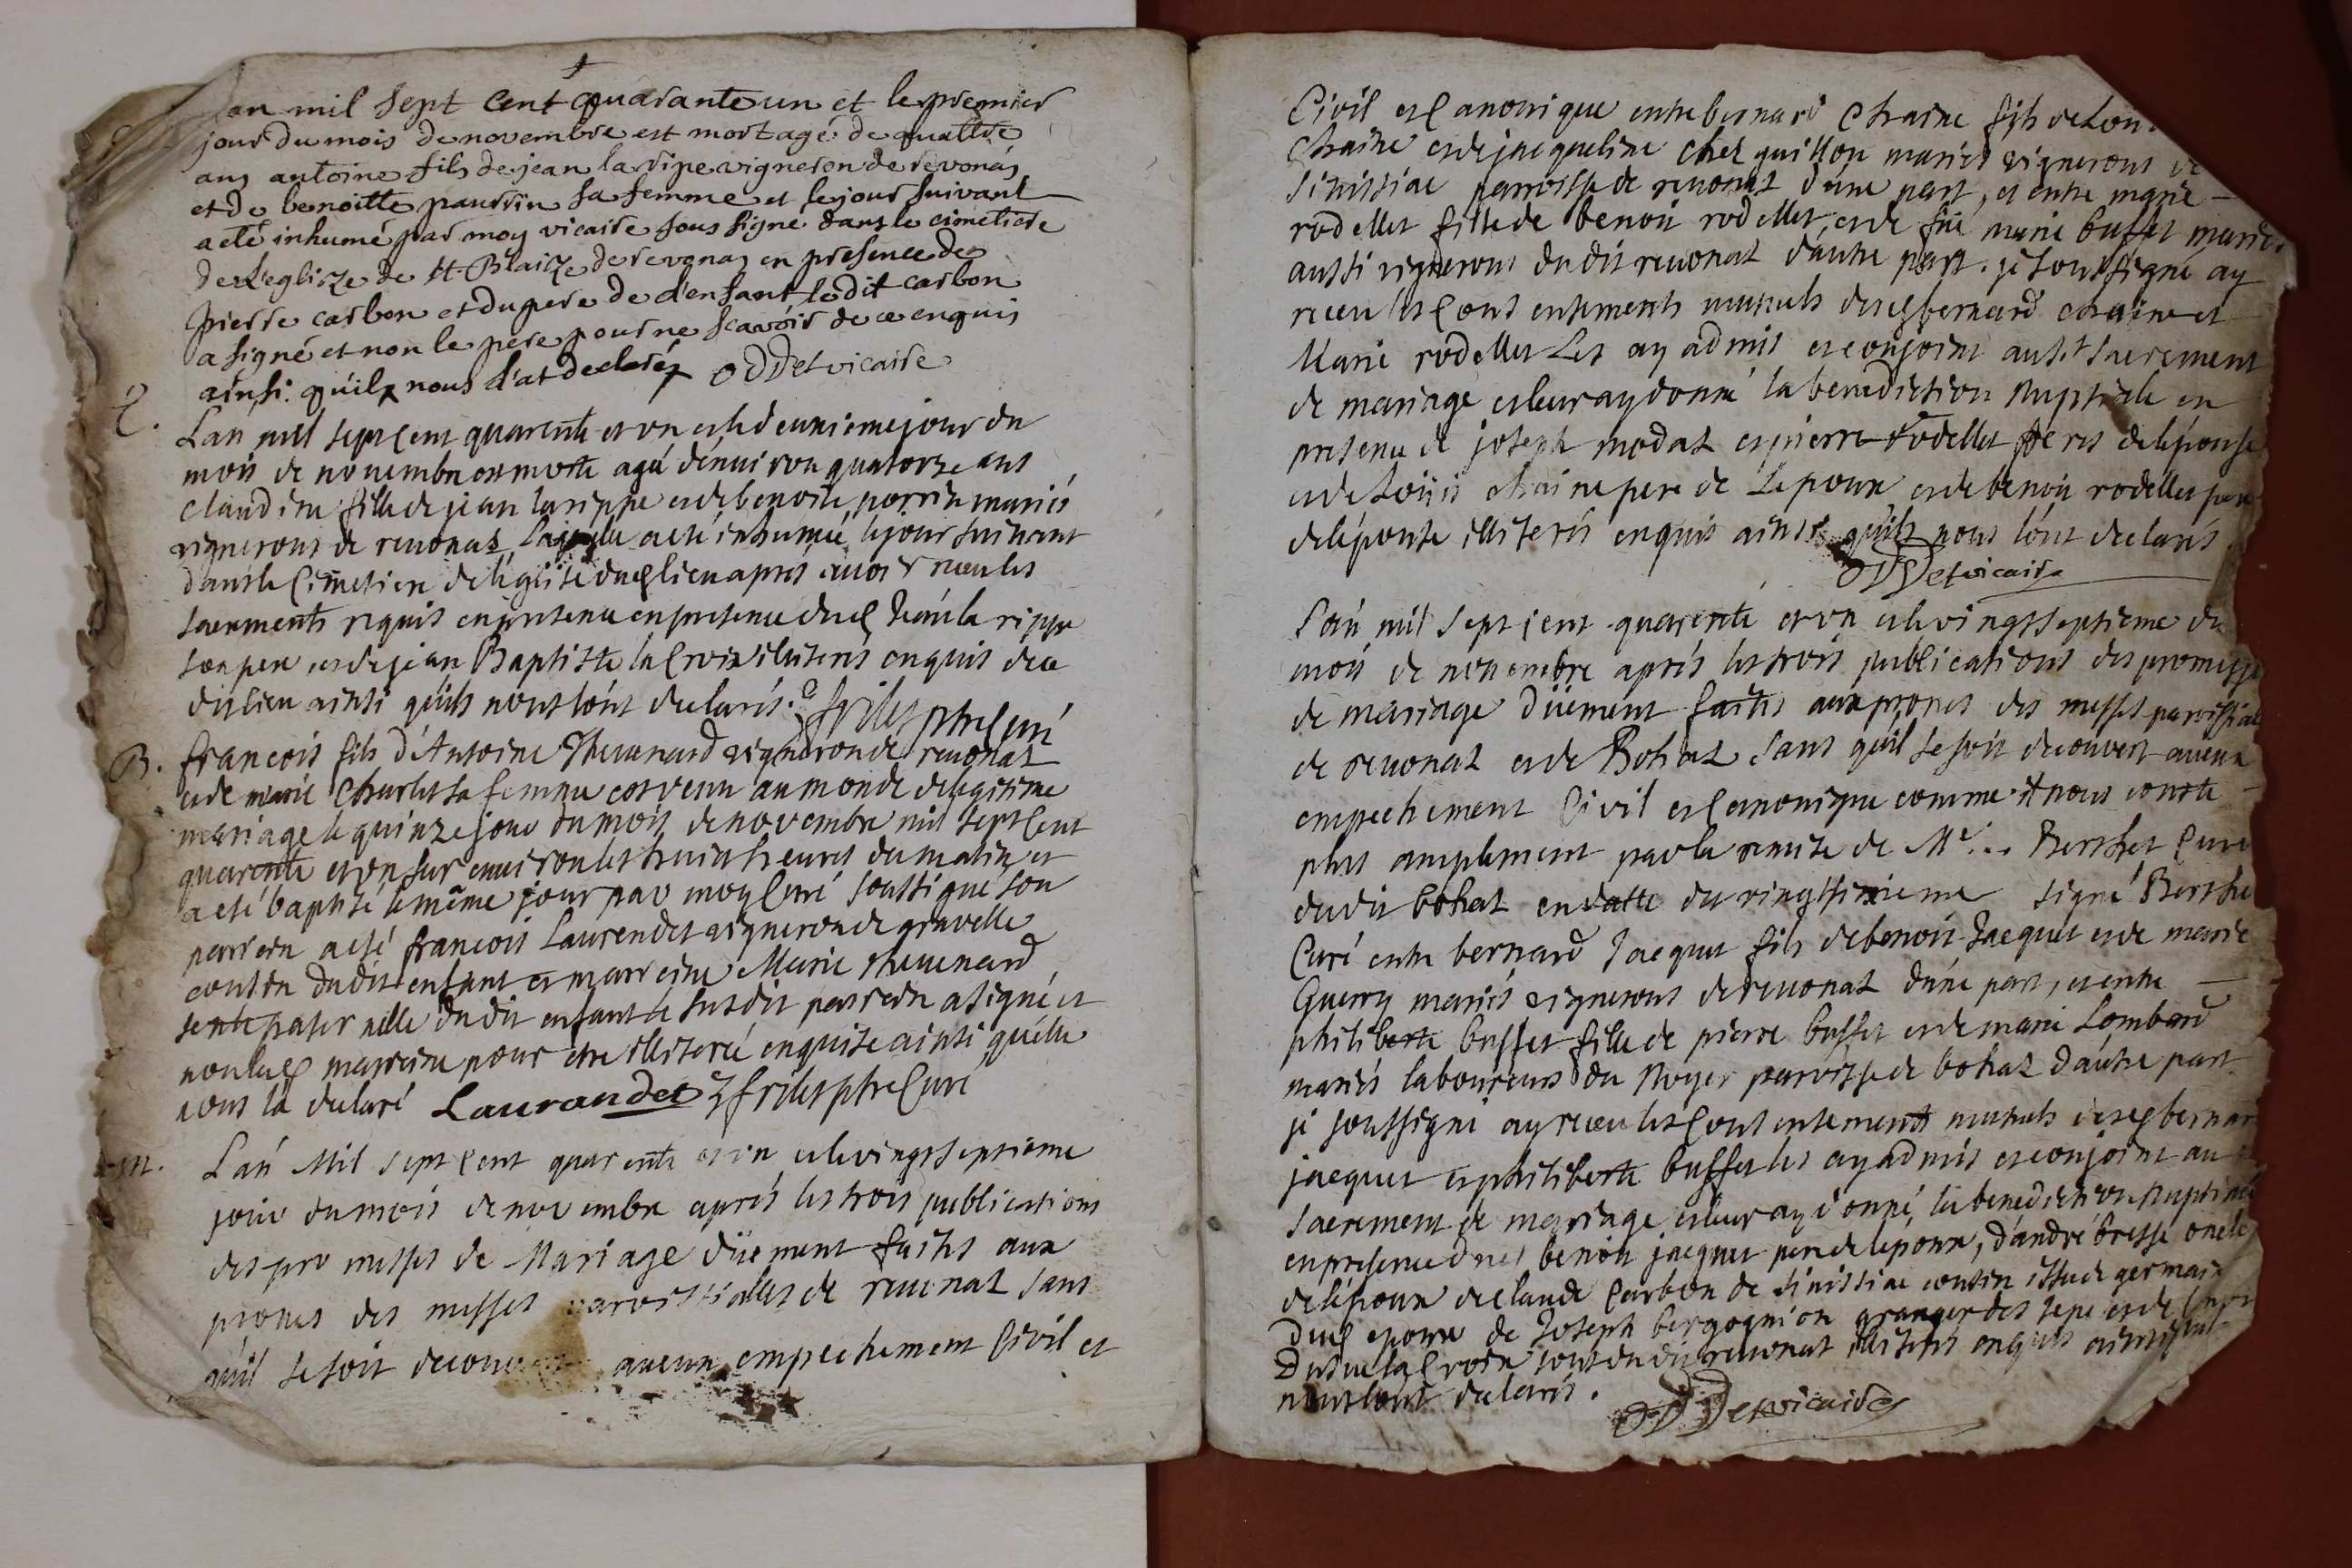 Lan mil sept cent quarante un et le premier
jour du mois de novembre est mort agé de quattre
ans antoine fils de jean larripe vigneron de revonas
et de benoitte paurrin sa femme et le jour suivant
a eté inhumé par moy vicaire sous signé dans le cimetiere
de l'eglize de St Blaize de revonas en presence de
pierre carbon et du pere de l'enfant ledit carbon
a signé et non le pere pour ne scavoir de ce enquis
ainsi qu'il nous l'at declaré vicaire
Lan mil sept cent quarente et vn et le deuxieme jour du
mois de novembre est morte agée d'enuiron quatorze ans
claudine fille de jean larippe et de benoite porrin mariés
vignerons de reuonas laquelle a eté inhumée le jour suivant
dans le Cimetiere de l'églisé dud lieu aprés avoir receu les
sacrements requis en presence en presence dud Jean la rippe
son pere et de jean Baptiste la Croix illiterés enquis de ce
dudit lieu ainsi qu'ils nous l'ont declarés. ptre Curé
B. francois fils d'Antoine Theuenard vigneron de reuonas
et de marie Charlet sa femme est venu au monde de legitime
mariage le quinze jour du mois de novembre mil sept Cent
quarente et vn sur enuiron les huict heures du matin et
a eté baptisé le même jour par moy Curé soussigné son
parrein a eté francois Laurendet vigneron de gravelle
cousin dudit enfant et marreine Marie theuenard
tente paternelle dudit enfant le susdit parrein a signé et
non lad marreine pour etre illiterée enquise ainsi qu'elle
nous l'a declaré Laurandet ptre Curé
m. L'an Mil sept Cent quarente et vn et le vingt septieme
jour du mois de novembre aprés les trois publications
des promesses de Mariage düement faites aux
prones des messes parroissialles de reuonas sans
qu'il se soit decouvert aucun empechement Civil et
Civil et Canonique entre bernard Chaine fils de Louis
Chaine et de jacqueline chez quillon mariés vignerons de
Simissiac parroisse de reuonas d'une part, et entre marie
rodellet fille de benoit rodellet et de füe marie buffet mariés
aussi vignerons dudit reuonas d'autre part. je soussigné ay
receu les Consentements mutuels desd bernard chaine et
Marie rodellet Les ay admis et conjoint au st sacrement
de mariage et leur ay donné la benediction Nuptiale en
presence de joseph modas et pierre rodellet freres de l'épouse
et de Loüis chaine pere de Lepoux et de benoit rodellet pere
de l'épouse illiterés enquis ainsi qu'ils nous l'ont declarés
vicaire
L'an mil sept cent quarente et vn et le vingt septieme du
mois de novembre aprés les trois publications des promesses
de mariage düement faites aux prones des messes parroissial
de reuonas et de Bohas sans qu'il se soit decouvert aucun
empechement Civil et Canonique comme il nous conste
plus amplement par la remise de Mr. Berthet Curé
dudit bohas en datte du vingt sixieme signé Berthet
Curé entre bernard Jacquet fils de benoit Jacquet et de marie
Guerry mariés vignerons de reuonas d'une part, et entre
philiberte buffet fille de pierre buffet et de marie Lombard
mariés laboureurs du Noyer parroisse de bohas d'autre part
je soussigné ay receu les Consentements mutuels desd bernard
jacquet et philiberte buffet les ay admis et conjoint au
sacrement de mariage et leur ay donné la benediction Nuptiale
en presence dud benoit jacquet pere de lepoux, d'andré bresse oncle
de l'époux de claude Carbon de simissiac cousin issu de germain
dud epoux de Joseph bergognion granger des et de
la Croix tous dudit reuonas illiterés enquis ainsi qu'ils
nous l'ont declarés. vicaire